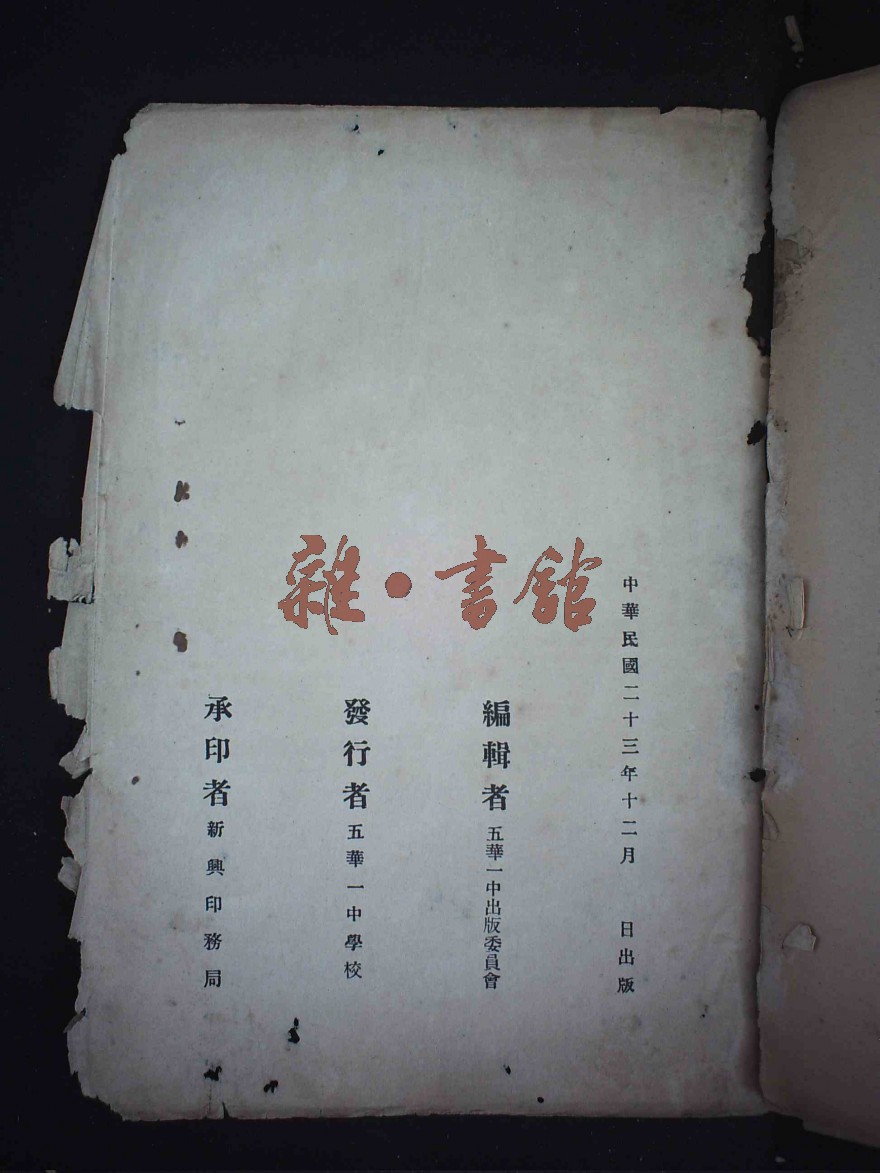 中華民國二十三年十二月　日出版
編輯者　五華一中出版委員會
發行者　五華一中學校
承印者　新興印務局
雜·書館